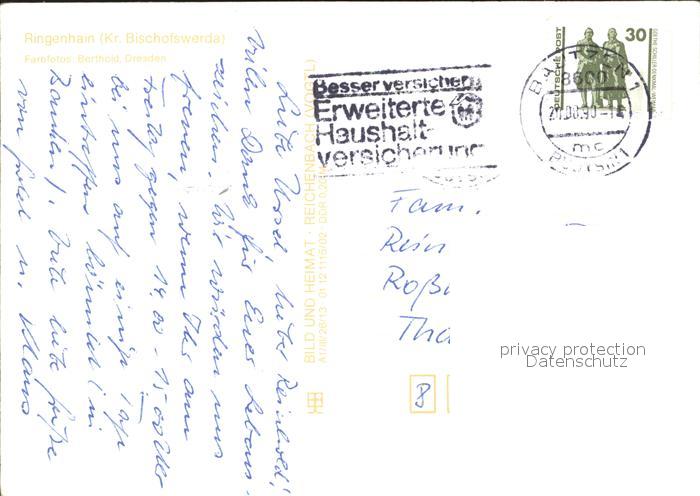 Ringenhain (Kr. Bischofswerda)
Farbfotos: Berthold, Dresden
Liebe Ursel, lieber Reinhold!
Vielen Dank für Euer Lebens-
zeichen. Wir würden uns
freuen, wenn Ihr am
Freitag gegen 14.00 - 15.00 Uhr
bei uns auf einige
eintreffen könntet (in
Bautzen). Viele liebe Grüße
von u. Klaus
BILD UND HEIMAT · REICHENBACH (VOGTL)
A1/III/26/13 01 12 1115/02 DDR 0,20 M
Besser versichert
Erweiterte
Haushalt-
versicherung
DEUTSCHE POST
30
BAUTZEN 1
8600
mc
Fam.
Rein
Roß
Tho
8
privacy protection
Datenschutz